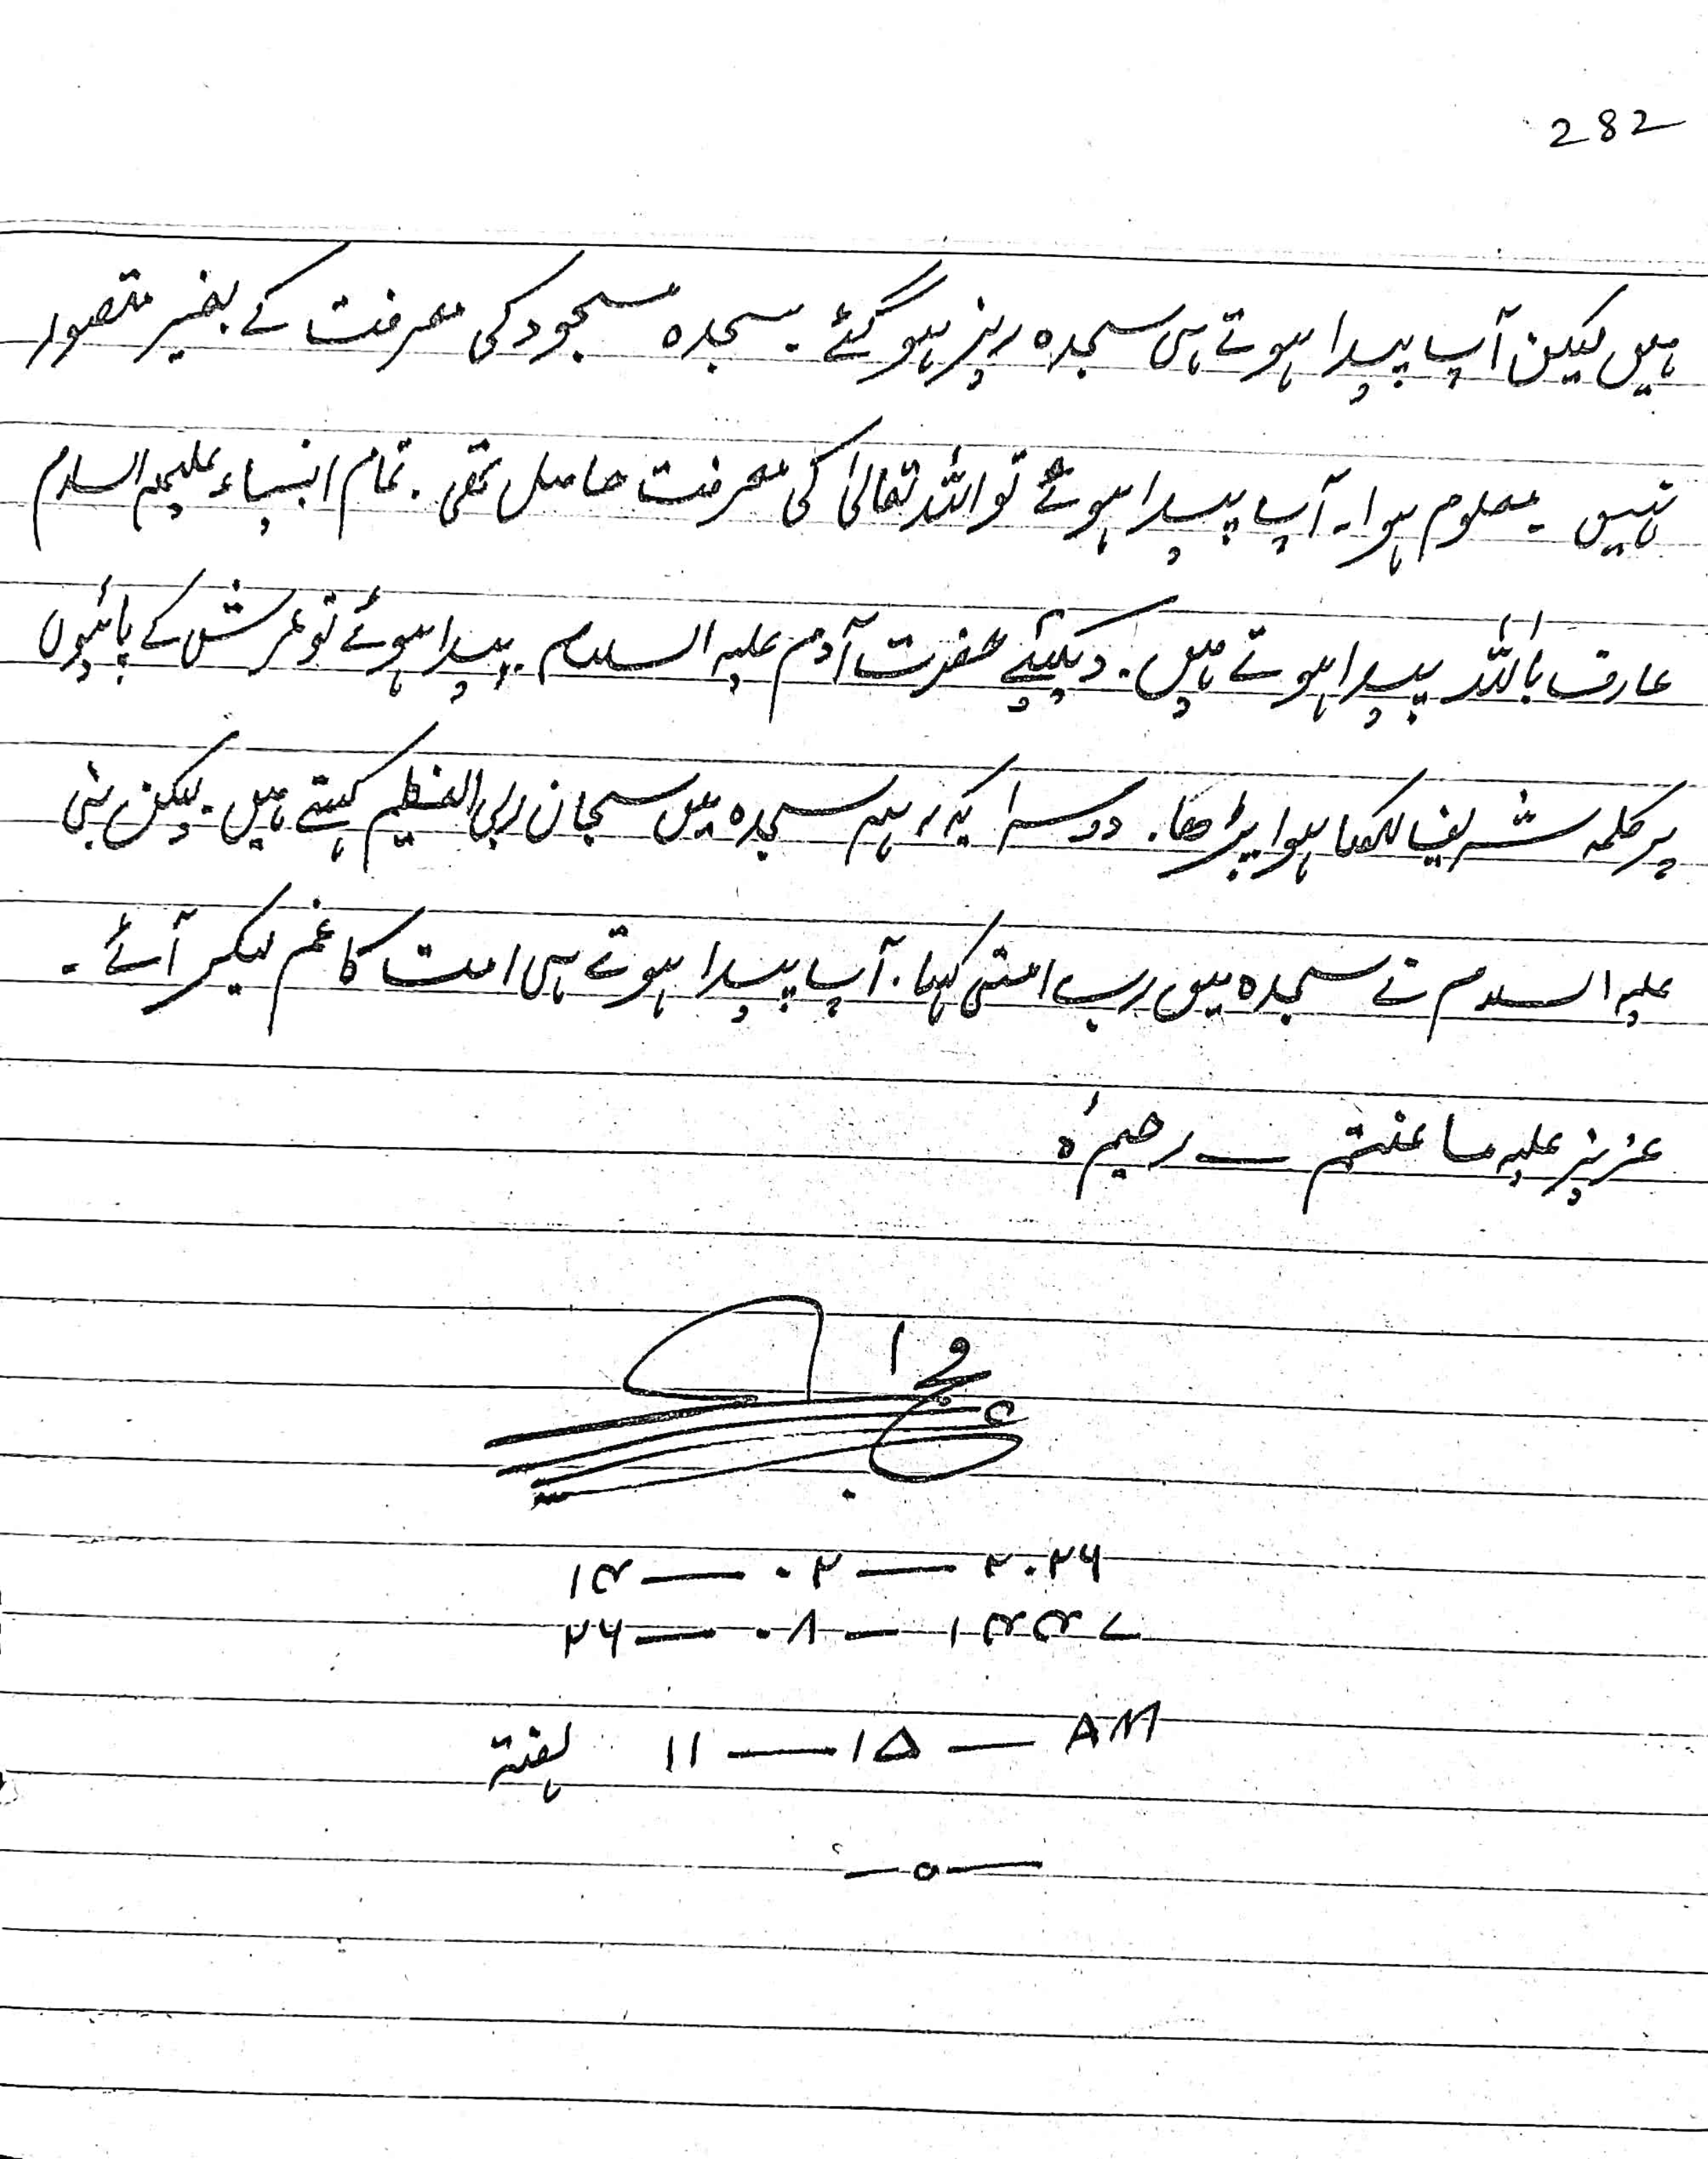 282
ہیں لیکن آپ پیدا ہوتے ہی سجدہ ریز ہو گئے۔ سجدہ مسجود کی معرفت کے بغیر متصور
نہیں۔ معلوم ہوا۔ آپ پیدا ہوئے تو اللہ تعالیٰ کی معرفت حاصل تھی۔ تمام انبیاء علیہم السلام
عارف باللہ پیدا ہوتے ہیں۔ دیکھئے حضرت آدم علیہ السلام پیدا ہوئے تو عرش کے پائیوں
پر کلمہ شریف لکھا ہوا پڑھا۔ دوسرا یہ کہ ہم سجدہ میں سبحان ربی العظیم کہتے ہیں۔ لیکن نبی
علیہ السلام نے سجدہ میں رب امتی کہا۔ آپ پیدا ہوتے ہی امت کا غم لیکر آئے۔
عزیز علیہ ما عنتم — رحیم ہ
۱۴ — ۰۲ — ۲۰۲۶
۲۶ — ۰۸ — ۱۴۴۷
۱۱ — ۱۵ — AM ہفتہ